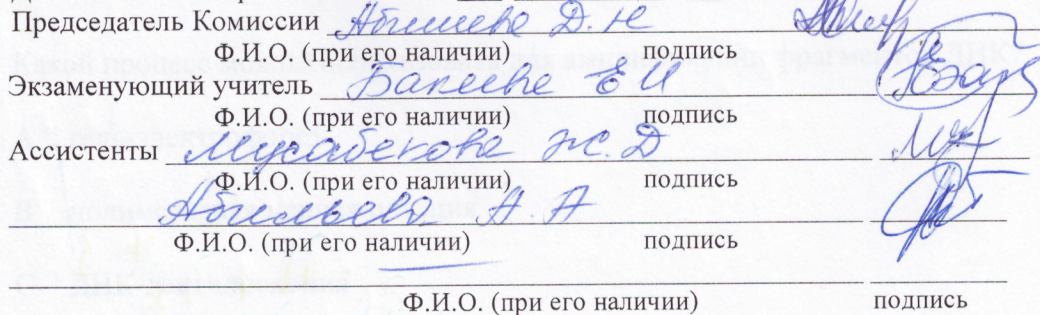 Председатель Комиссии Абишева Д. Н
Ф.И.О. (при его наличии) подпись
Экзаменующий учитель Бапиева Е И
Ф.И.О. (при его наличии) подпись
Ассистенты Мусабекова Ж. Д
Ф.И.О. (при его наличии) подпись
Абильева А. А
Ф.И.О. (при его наличии) подпись
Ф.И.О. (при его наличии) подпись